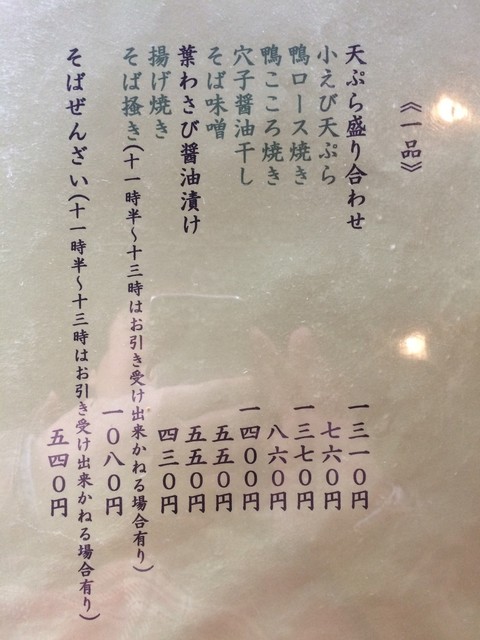 《一品》
天ぷら盛り合わせ 一三一〇円
小えび天ぷら 七六〇円
鴨ロース焼き 一三七〇円
鴨こころ焼き 八六〇円
穴子醤油干し 一四〇〇円
そば味噌 五五〇円
葉わさび醤油漬け 五五〇円
揚げ焼き 四三〇円
そば掻き(十一時半〜十三時はお引き受け出来かねる場合有り)
一〇八〇円
そばぜんざい(十一時半〜十三時はお引き受け出来かねる場合有り)
五四〇円